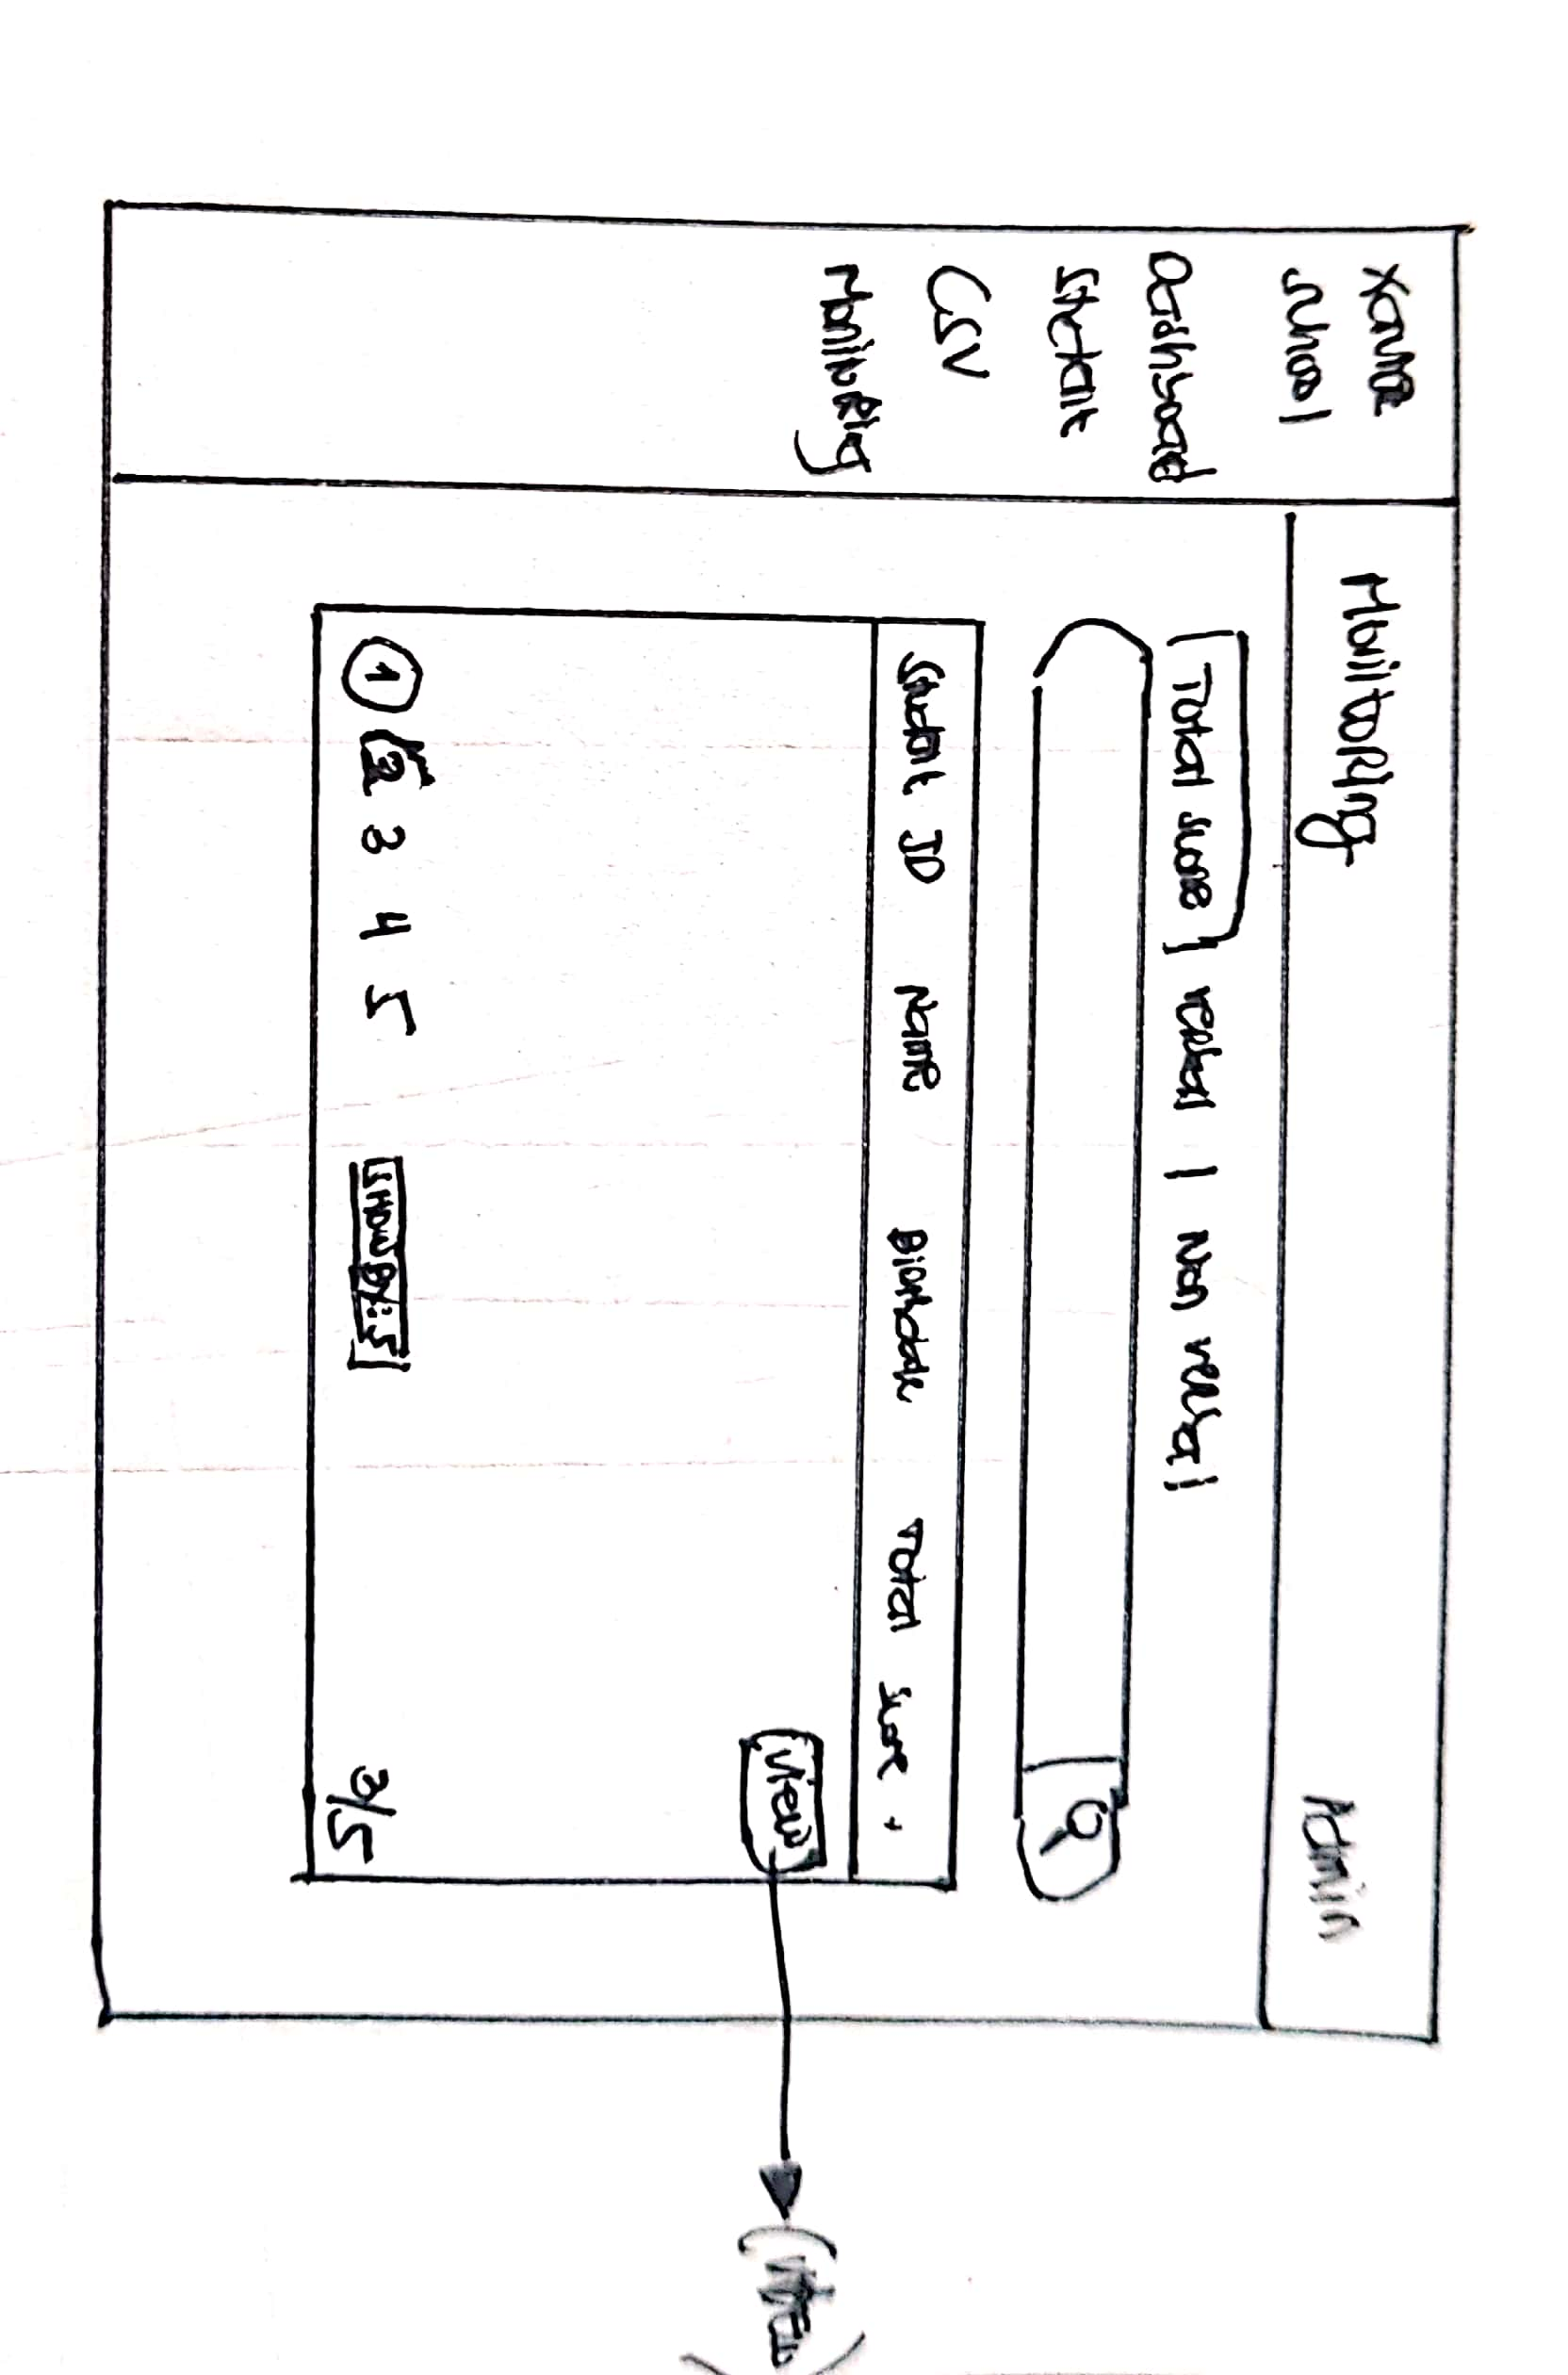 Xavia
School
Dashboard
Student
CSV
Monitoring
Monitoring
Admin
Total score | verbal | Non verbal
Student ID Name Birthdate Total score
View
1 2 3 4 5
SHOW BY: 5
3/5